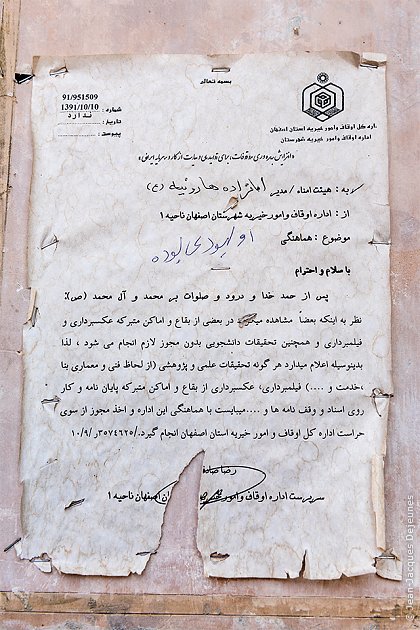 بسمه تعالی
شماره : 91/951509
تاریخ : 1391/10/10
پیوست : ندارد
اداره کل اوقاف و امور خیریه استان اصفهان
اداره اوقاف و امور خیریه شهرستان
به : هیئت امناء / مدیر امامزاده هارونیه (ع)
از : اداره اوقاف و امور خیریه شهرستان اصفهان ناحیه ۱
موضوع : هماهنگی
با سلام و احترام
پس از حمد خدا و درود و صلوات بر محمد و آل محمد (ص):
نظر به اینکه بعضاً مشاهده میگردد در بعضی از بقاع و اماکن متبرکه عکسبرداری و
فیلمبرداری و همچنین تحقیقات دانشجویی بدون مجوز لازم انجام می شود ، لذا
بدینوسیله اعلام میدارد هر گونه تحقیقات علمی و پژوهشی (از لحاظ فنی و معماری بنا
،خدمت و ....) فیلمبرداری، عکسبرداری از بقاع و اماکن متبرکه پایان نامه و کار
روی اسناد و وقف نامه ها و ....میبایست با هماهنگی این اداره و اخذ مجوز از سوی
حراست اداره کل اوقاف و امور خیریه استان اصفهان انجام گیرد./۳۵۷۴۶۲۵ر/۱۰/۹
رضا صادقی
سرپرست اداره اوقاف و امور ان اصفهان ناحیه ۱
© Jean-Jacques Dejeunes